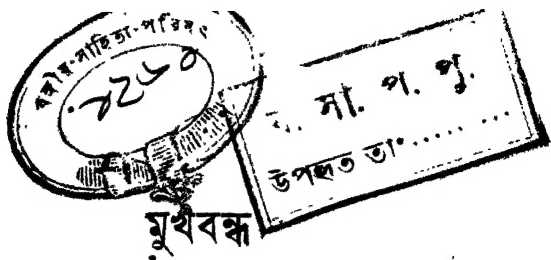 বঙ্গীয়-সাহিত্য-পরিষৎ
ব. সা. প. পু.
উপহৃত তা.........
মুখবন্ধ